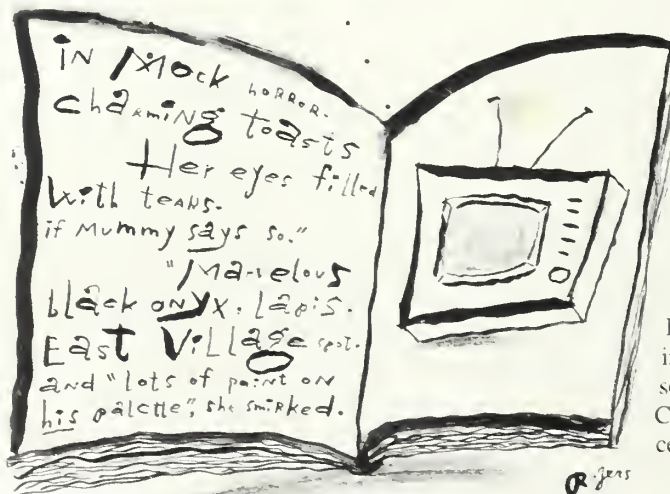 in Mock horror.
charming toasts
Her eyes filled
With tears.
if Mummy says so."
"Marvelous
black onyx, lapis.
East Village spot.
and "lots of paint on
his palette", she smirked.